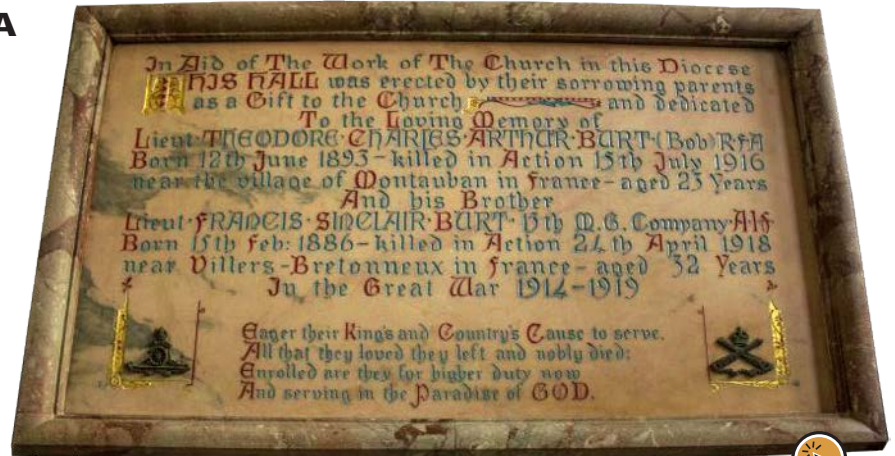 A
In Aid of The Work of The Church in this Diocese
THIS HALL was erected by their sorrowing parents
as a Gift to the Church and dedicated
To the Loving Memory of
Lieut·THEODORE·CHARLES·ARTHUR·BURT·(Bob)RFA
Born 12th June 1893-killed in Action 15th July 1916
near the village of Montauban in France-aged 23 Years
And his Brother
Lieut·FRANCIS·SINCLAIR·BURT· 15th M.G. Company·AIF·
Born 15th Feb: 1886-killed in Action 24th April 1918
near Villers-Bretonneux in France-aged 32 Years
In the Great War 1914-1919
Eager their King's and Country's Cause to serve.
All that they loved they left and nobly died:
Enrolled are they for higher duty now
And serving in the Paradise of GOD.